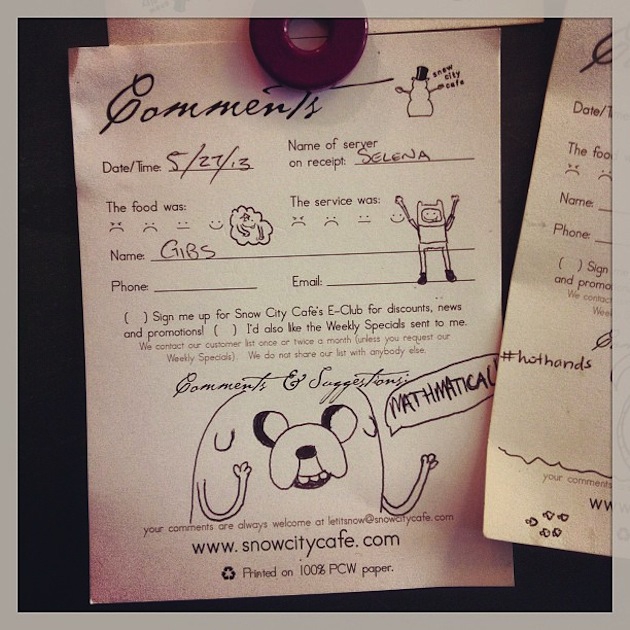 Comments
snow
city
cafe
Date/Time: 5/27/13
Name of server
on receipt: SELENA
The food was:
The service was:
Name: GIBS
Phone:
Email:
( ) Sign me up for Snow City Cafe's E-Club for discounts, news
and promotions! ( ) I'd also like the Weekly Specials sent to me.
We contact our customer list once or twice a month (unless you request our
Weekly Specials). We do not share our list with anybody else.
Comments & Suggestions:
MATHMATICAL!
your comments are always welcome at letitsnow@snowcitycafe.com
www.snowcitycafe.com
Printed on 100% PCW paper.
Date/
The foo
Name:
Phone:
( ) Sign
and promo
We contac
#hothands
your comments
ww